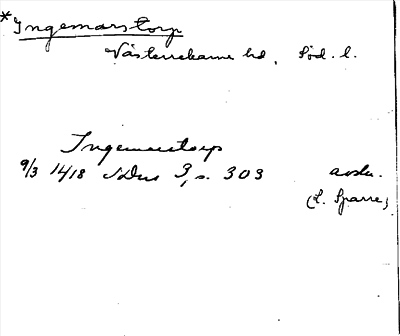 *Ingemarstorp
Västerrekarne hd, Söd. l.
Ingemarstorp
9/3 1418 SDns 3, s. 303 avskr.
(L. Sparre)